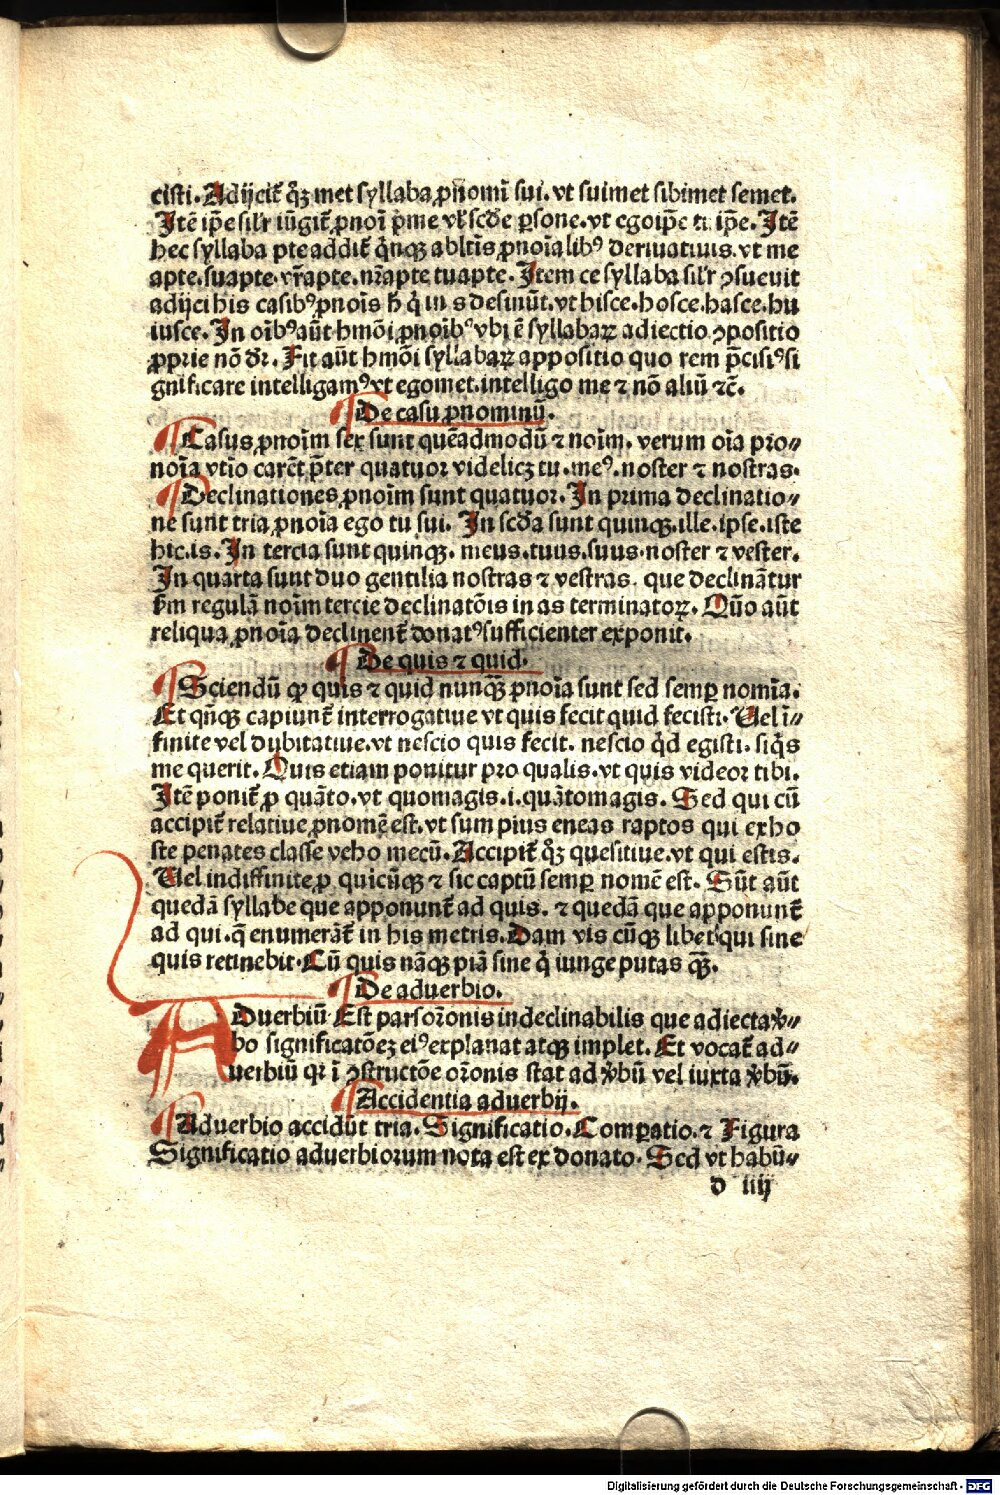 cisti. Adijcit᷑ qꝫ met syllaba ꝓnomi sui. vt suimet sibimet semet.
Itē ip̄e sil'r iūgit᷑ ꝓnoī p̄me vł scd'e ꝑsone. vt egoip̄e tu ip̄e. Itē
hec syllaba pte addit᷑ q̄nqꝫ ablt̄is ꝓnoīalibꝰ deriuatiuis. vt me
apte. suapte. vr̄apte. nr̄apte tuapte. Item ce syllaba sil'r ꝯsueuit
adijci his casibꝰ ꝓnoīs q̄ in s desinūt. vt hisce. hosce. hasce. hu
iusce. In oībꝰ aūt hmōi ꝓnoībꝰ vbi ē syllabaꝝ adiectio ꝯpositio
ꝓprie nō dr̄. Fit aūt hmōi syllabaꝝ appositio quo rem p̄cisiꝰ si
gnificare intelligamꝰ vt egomet. intelligo me ⁊ nō aliū ⁊c̄.
De casu ꝓnominū.
Casus ꝓnoīm sex sunt quēadmodū ⁊ noīm. verum oīa pro⸗
noīa vtīo carēt p̄ter quatuor videlicꝫ tu. meꝰ. noster ⁊ nostras.
Declinationes ꝓnoīm sunt quatuor. In prima declinatio⸗
ne sunt tria ꝓnoīa ego tu sui. In scd'a sunt quinqꝫ. ille. ipse. iste
hic. is. In tercia sunt quinqꝫ. meus. tuus. suus. noster ⁊ vester.
In quarta sunt duo gentilia nostras ⁊ vestras. que declinātur
ẜm regulā noīm tercie declinatōis in as terminatoꝝ. Qūo aūt
reliqua ꝓnoīa declinent᷑ donatꝰ sufficienter exponit.
De quis ⁊ quid.
Sciendū ꝙ quis ⁊ quid nunqꝫ̄ ꝓnoīa sunt sed semꝑ nomīa.
Et qn̄qꝫ capiunt᷑ interrogatiue vt quis fecit quid fecisti. Vel ī⸗
finite vel dubitatiue. vt nescio quis fecit. nescio qd̄ egisti. siq̄s
me querit. Quis etiam ponitur pro qualis. vt quis videor tibi.
Itē ponit᷑ ꝓ quāto. vt quomagis. i. quātomagis. Sed qui cū
accipit᷑ relatiue ꝓnomē est. vt sum pius eneas raptos qui ex ho
ste penates classe veho mecū. Accipit᷑ qꝫ quesitiue. vt qui estis.
Vel indiffinite ꝓ quicūqꝫ ⁊ sic captū semꝑ nomē est. Sūt aūt
quedā syllabe que apponunt᷑ ad quis. ⁊ quedā que apponunt᷑
ad qui. q̄ enumerāt᷑ in his metris. Dam vis cūqꝫ libet qui sine
quis retinebit. Cū quis nāqꝫ piā sine q̄ iunge putas qꝫ̄.
De aduerbio.
Aduerbiū Est pars or̄onis indeclinabilis que adiecta v̄⸗
bo significatōeꝫ eiꝰ explanat atqꝫ implet. Et vocat᷑ ad⸗
uerbiū qr ī ꝯstructōe or̄onis stat ad v̄bū vel iuxta v̄bū.
Accidentia aduerbij.
Aduerbio accidūt tria. Significatio. Comꝑatio. ⁊ Figura
Significatio aduerbiorum nota est ex donato. Sed vt habū⸗
d iiij
Digitalisierung gefördert durch die Deutsche Forschungsgemeinschaft - DFG